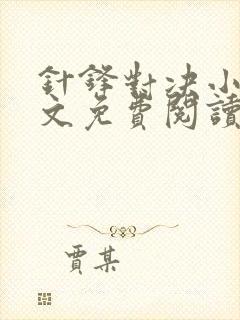 針鋒對決小
文免費閱讀
賈某